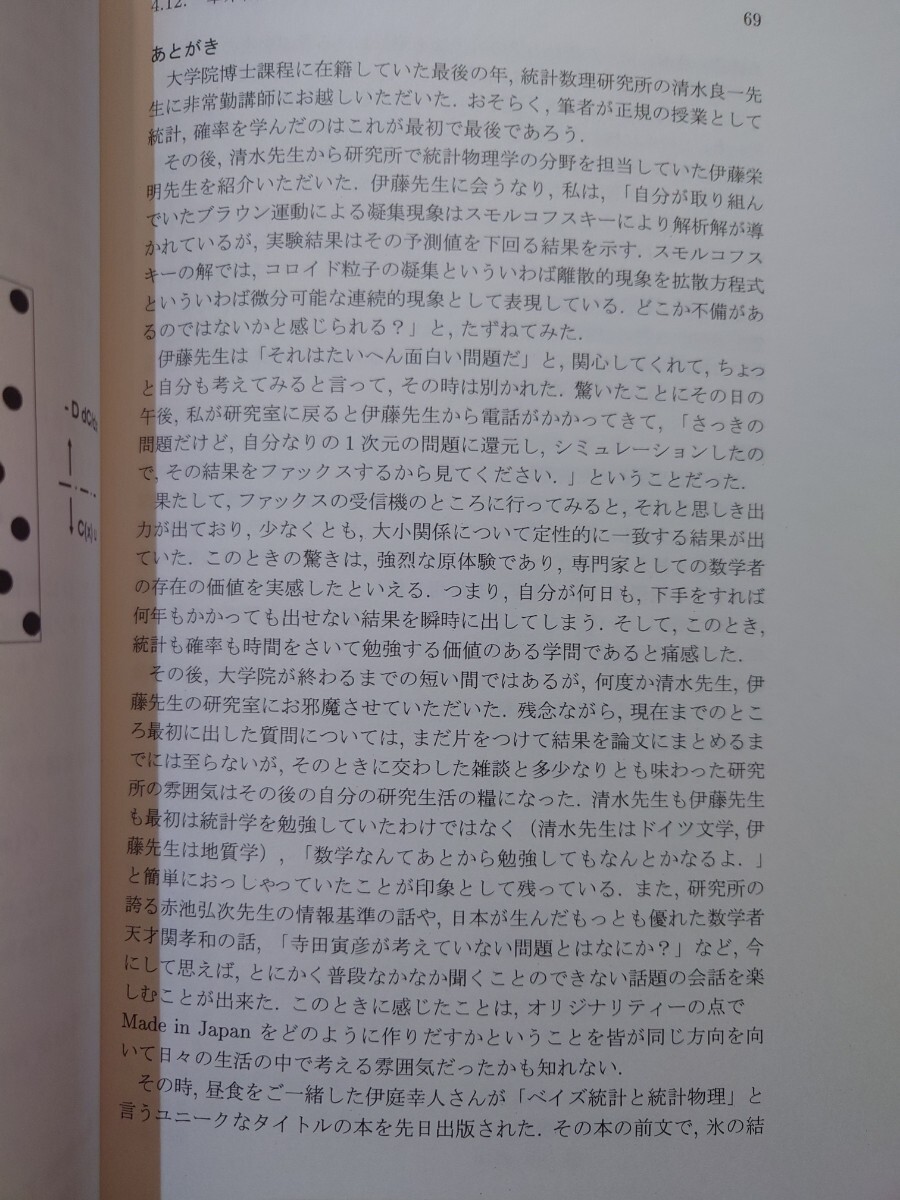 4.12.
69
あとがき
大学院博士課程に在籍していた最後の年, 統計数理研究所の清水良一先
生に非常勤講師にお越しいただいた. おそらく, 筆者が正規の授業として
統計, 確率を学んだのはこれが最初で最後であろう.
その後, 清水先生から研究所で統計物理学の分野を担当していた伊藤栄
明先生を紹介いただいた. 伊藤先生に会うなり, 私は, 「自分が取り組ん
でいたブラウン運動による凝集現象はスモルコフスキーにより解析解が導
かれているが, 実験結果はその予測値を下回る結果を示す. スモルコフス
キーの解では, コロイド粒子の凝集といういわば離散的現象を拡散方程式
といういわば微分可能な連続的現象として表現している. どこか不備があ
るのではないかと感じられる？」と, たずねてみた.
伊藤先生は「それはたいへん面白い問題だ」と, 関心してくれて, ちょっ
と自分も考えてみると言って, その時は別かれた. 驚いたことにその日の
午後, 私が研究室に戻ると伊藤先生から電話がかかってきて, 「さっきの
問題だけど, 自分なりの１次元の問題に還元し, シミュレーションしたの
で, その結果をファックスするから見てください. 」ということだった.
果たして, ファックスの受信機のところに行ってみると, それと思しき出
力が出ており, 少なくとも, 大小関係について定性的に一致する結果が出
ていた. このときの驚きは, 強烈な原体験であり, 専門家としての数学者
の存在の価値を実感したといえる. つまり, 自分が何日も, 下手をすれば
何年もかかっても出せない結果を瞬時に出してしまう. そして, このとき,
統計も確率も時間をさいて勉強する価値のある学問であると痛感した.
その後, 大学院が終わるまでの短い間ではあるが, 何度か清水先生, 伊
藤先生の研究室にお邪魔させていただいた. 残念ながら, 現在までのとこ
ろ最初に出した質問については, まだ片をつけて結果を論文にまとめるま
でには至らないが, そのときに交わした雑談と多少なりとも味わった研究
所の雰囲気はその後の自分の研究生活の糧になった. 清水先生も伊藤先生
も最初は統計学を勉強していたわけではなく（清水先生はドイツ文学, 伊
藤先生は地質学）, 「数学なんてあとから勉強してもなんとかなるよ. 」
と簡単におっしゃっていたことが印象として残っている. また, 研究所の
誇る赤池弘次先生の情報基準の話や, 日本が生んだもっとも優れた数学者
天才関孝和の話, 「寺田寅彦が考えていない問題とはなにか？」など, 今
にして思えば, とにかく普段なかなか聞くことのできない話題の会話を楽
しむことが出来た. このときに感じたことは, オリジナリティーの点で
Made in Japan をどのように作りだすかということを皆が同じ方向を向
いて日々の生活の中で考える雰囲気だったかも知れない.
その時, 昼食をご一緒した伊庭幸人さんが「ベイズ統計と統計物理」と
言うユニークなタイトルの本を先日出版された. その本の前文で, 氷の結
- D dC/dx
C(x) u